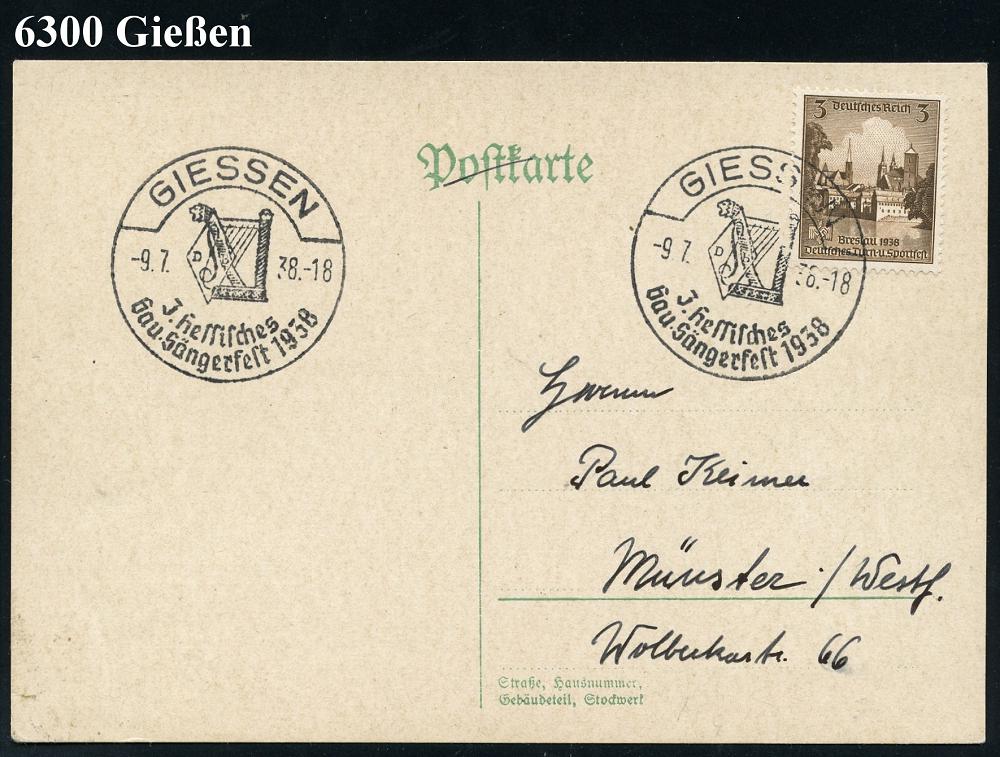 6300 Gießen
Postkarte
GIESSEN
-9.7. 38.-18
D
3. Hessisches
Gau-Sängerfest 1938
3 Deutsches Reich 3
Breslau 1938
Deutsches Turn-u. Sportfest
GIESS
-9.7 38.-18
D
3. Hessisches
Gau-Sängerfest 1938
Herrn
Paul Keimer
Münster /Westf.
66
Straße, Hausnummer,
Gebäudeteil, Stockwerk